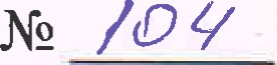 № 104